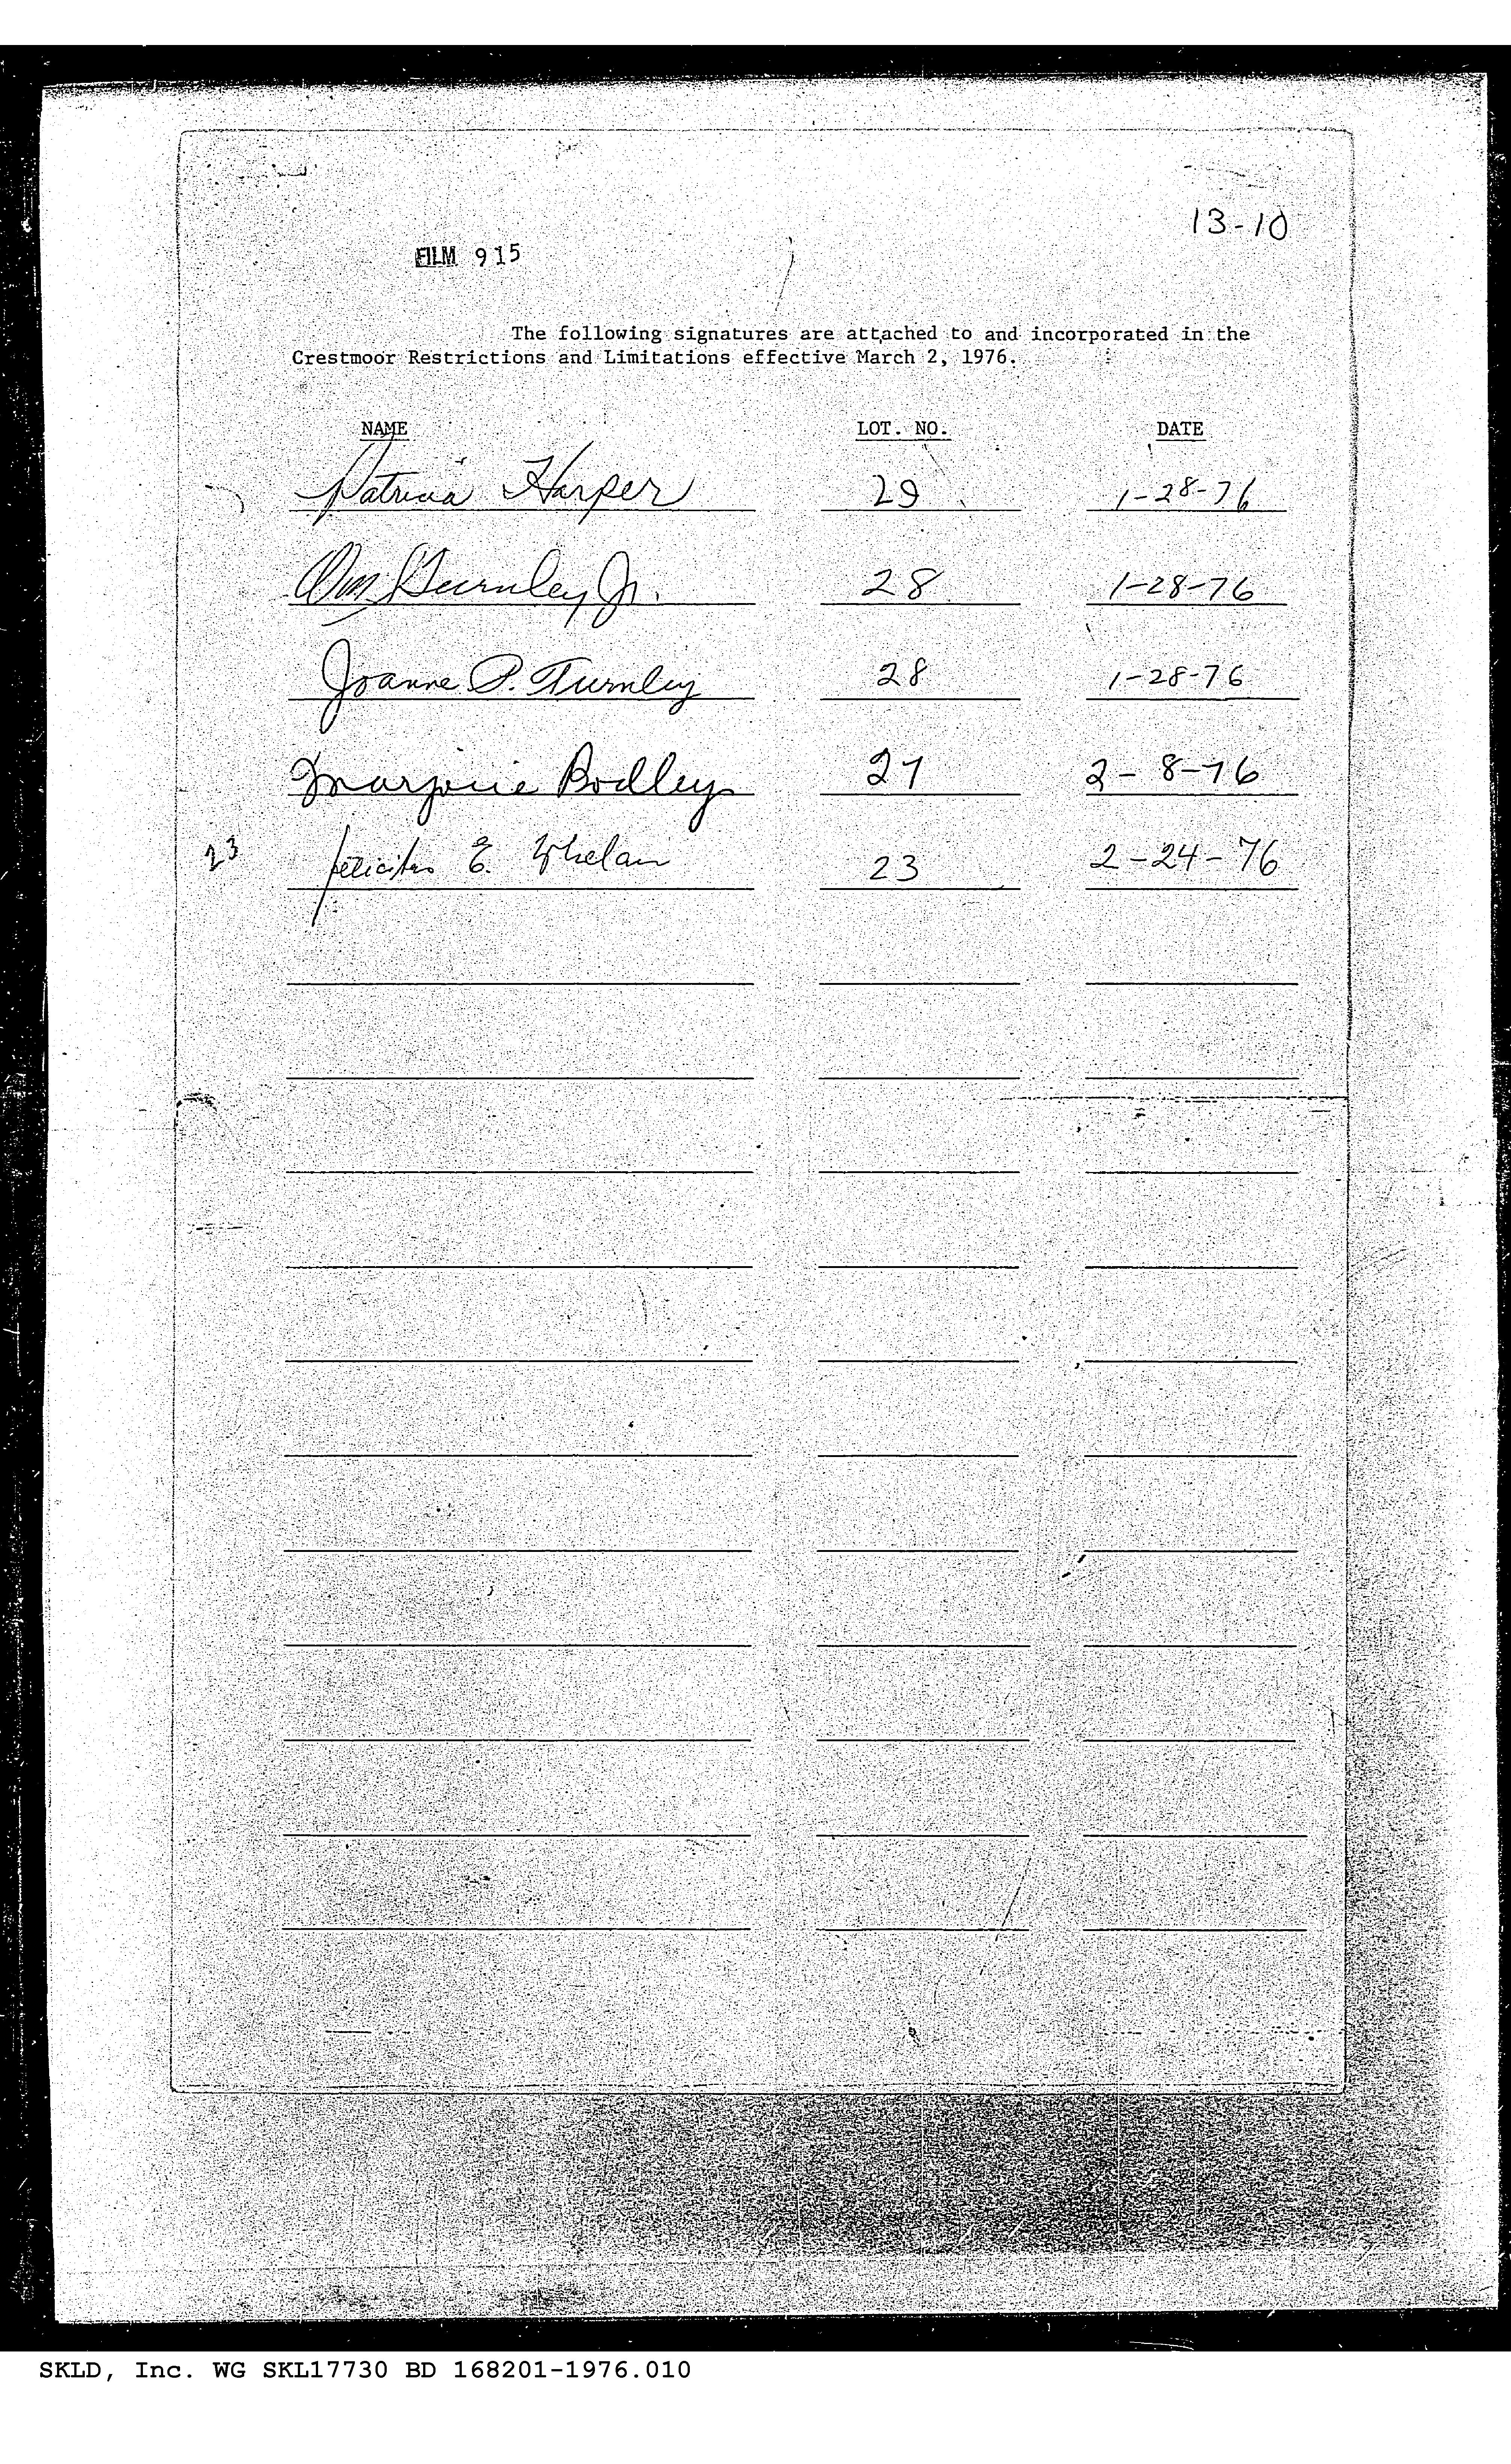 13-10
FILM 915
The following signatures are attached to and incorporated in the
Crestmoor Restrictions and Limitations effective March 2, 1976.
NAME LOT. NO. DATE
Patricia Harper 29 1-28-76
Wm Turnley Jr. 28 1-28-76
Joanne P. Turnley 28 1-28-76
Marjorie Bodley 27 2-8-76
23 Felicitas E. Whelan 23 2-24-76
SKLD, Inc. WG SKL17730 BD 168201-1976.010